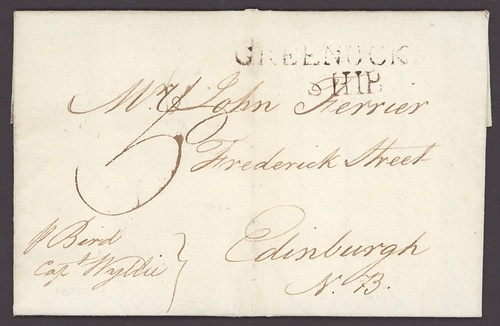 GREENOCK
SHIP
Mr. John Ferrier
Frederick Street
Edinburgh
N. B.
p Bird
Capt Wyllie